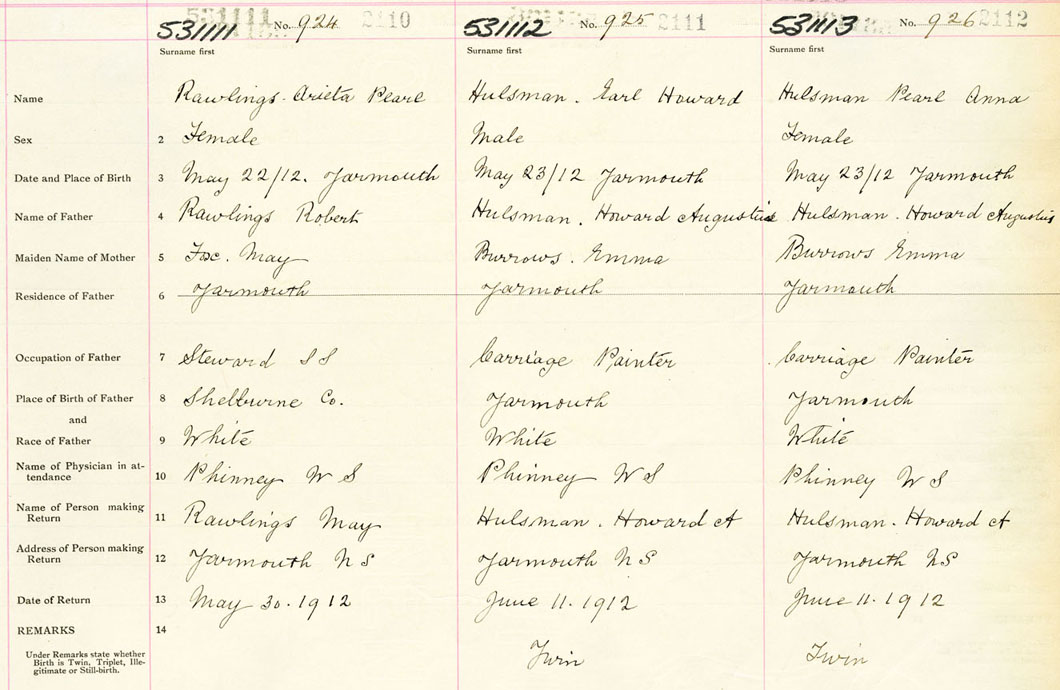 531111 No. 924 2110 531112 No. 925 2111 531113 No. 926 2112
Surname first Surname first Surname first
Name Rawlings. Arieta Pearl Hulsman. Earl Howard Hulsman Pearl Anna
Sex 2 Female Male Female
Date and Place of Birth 3 May 22/12. Yarmouth May 23/12 Yarmouth May 23/12 Yarmouth
Name of Father 4 Rawlings Robert Hulsman. Howard Augustus Hulsman. Howard Augustus
Maiden Name of Mother 5 Fox. May Burrows. Emma Burrows Emma
Residence of Father 6 Yarmouth Yarmouth Yarmouth
Occupation of Father 7 Steward SS Carriage Painter Carriage Painter
Place of Birth of Father 8 Shelburne Co. Yarmouth Yarmouth
and
Race of Father 9 White White White
Name of Physician in at-
tendance 10 Phinney W S Phinney W S Phinney W S
Name of Person making
Return 11 Rawlings May Hulsman. Howard A Hulsman. Howard A
Address of Person making
Return 12 Yarmouth N S Yarmouth N S Yarmouth N S
Date of Return 13 May 30. 1912 June 11. 1912 June 11. 1912
REMARKS 14
Under Remarks state whether
Birth is Twin, Triplet, Ille-
gitimate or Still-birth. Twin Twin